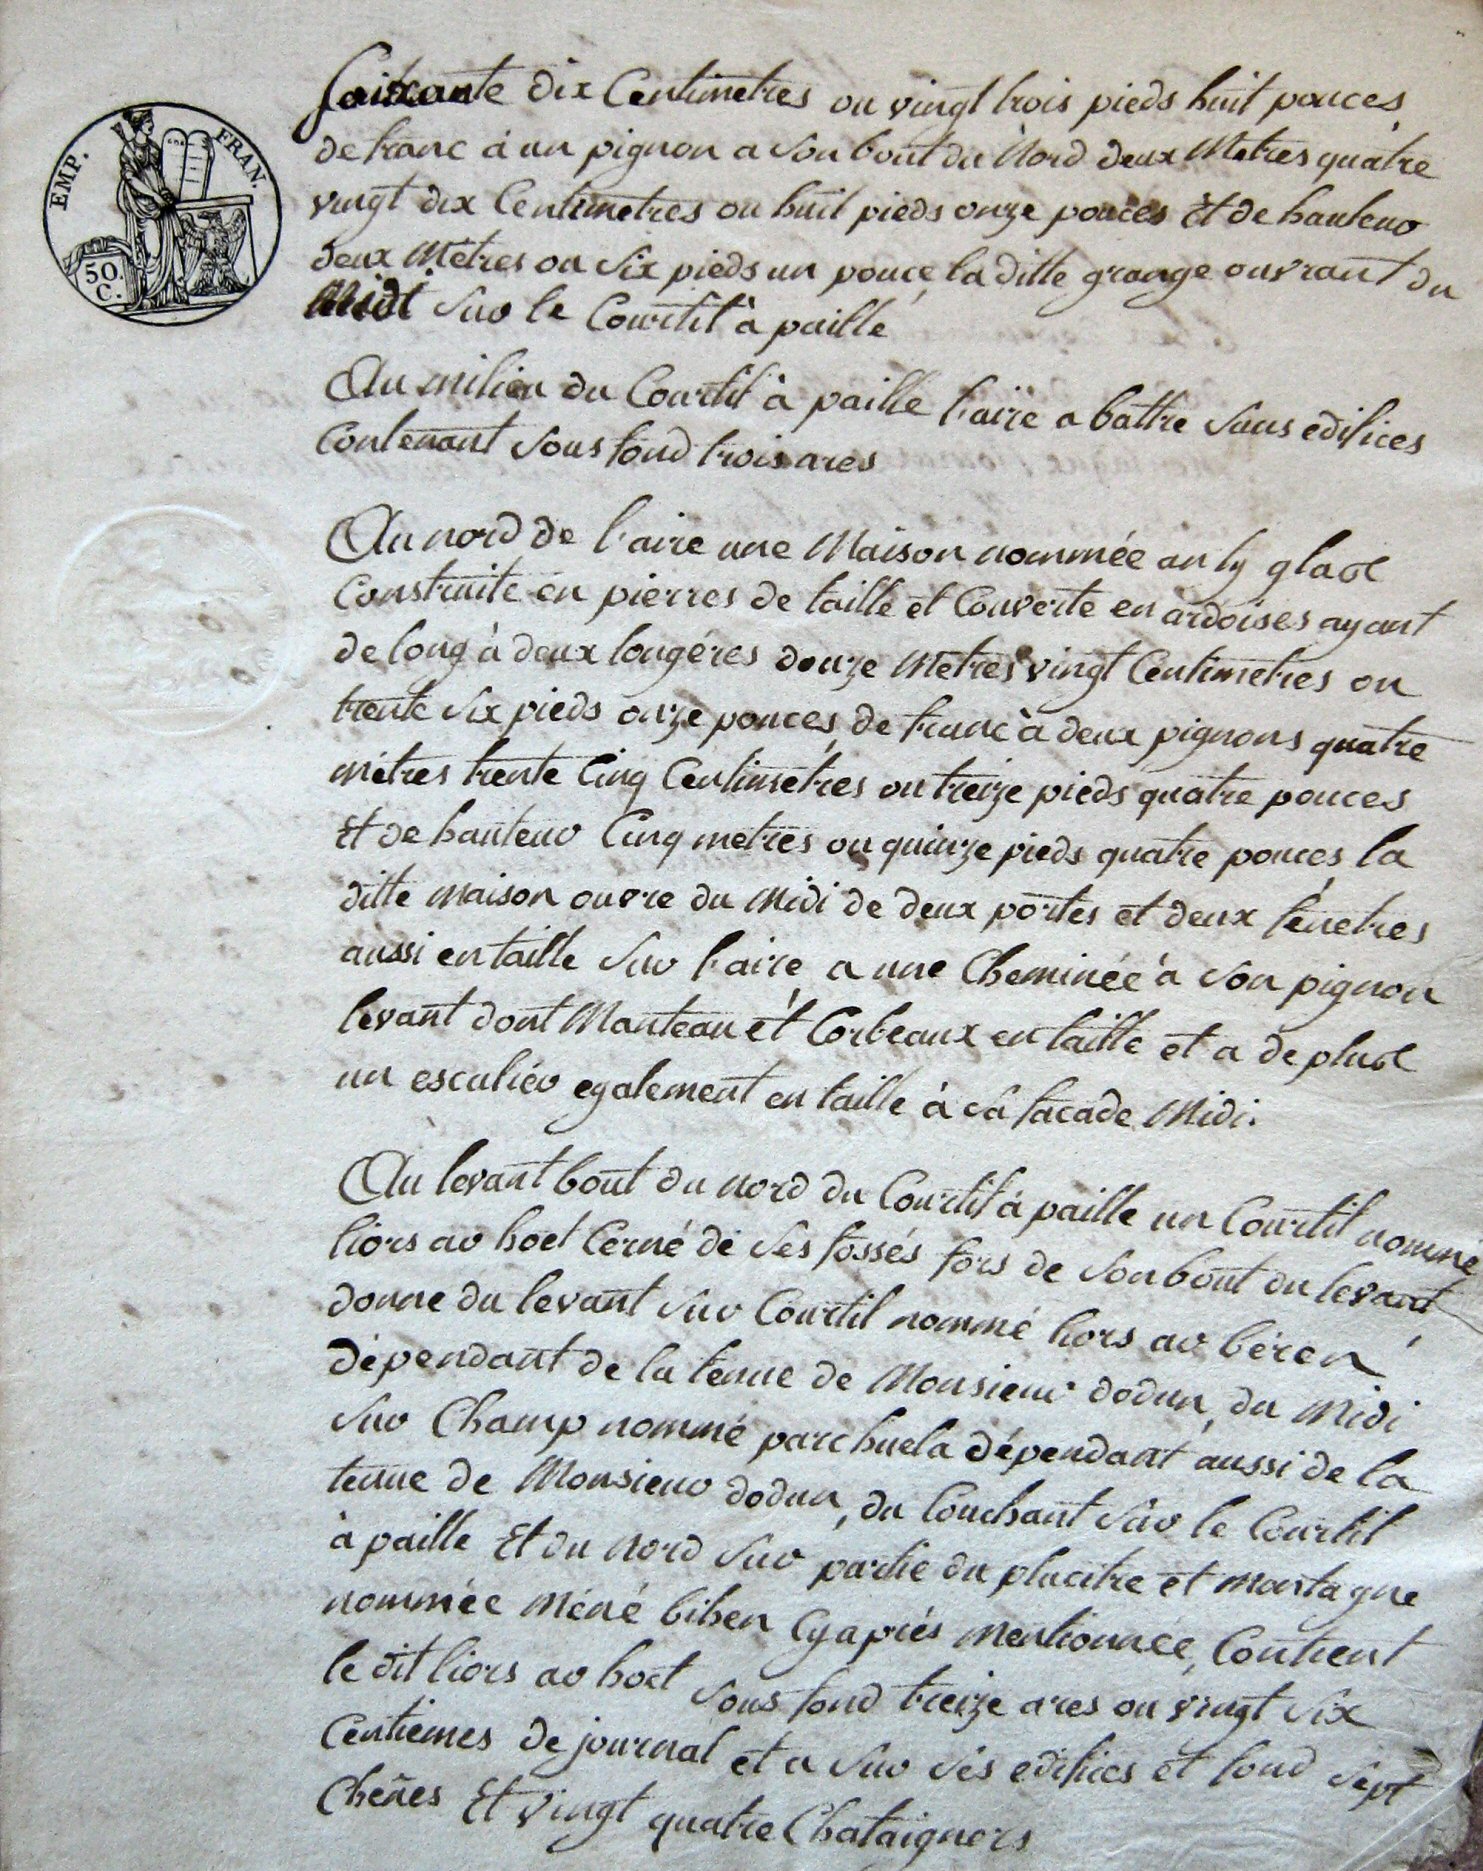 EMP. FRAN.
50 C.
Soixante dix Centimetres ou vingt trois pieds huit pouces,
de franc à un pignon a son bout du Nord deux Metres quatre
vingt dix Centimetres ou huit pieds onze pouces Et de hauteur
deux Métres ou six pieds un pouce, la ditte grange ouvrant du
Midi sur le Courtil à paille
Au milieu du Courtil à paille l'aire a battre sans edifices
Contenant sous fond trois ares
Au nord de l'aire une Maison nommée an ty glas
Construite en pierres de taille et Couverte en ardoises ayant
de long à deux longéres douze Metres vingt Centimetres ou
trente six pieds onze pouces, de franc à deux pignons quatre
métres trente Cinq Centimétres ou treize pieds quatre pouces
Et de hauteur Cinq metres ou quinze pieds quatre pouces, la
ditte maison ouvre du Midi de deux portes et deux fénetres
aussi en taille sur l'aire, a une Cheminée à son pignon
levant dont Manteau et Corbeaux en taille et a de plus
un escaliér egalement en taille à sa facade Midi.
Au levant bout du nord du Courtil à paille un Courtil nommé
liors ar hoet Cerné de ses fossés fors de son bout du levant,
donne du levant sur Courtil nommé liors ar béren
dépendant de la tenue de Monsieur dodun, du Midi
sur Champ nommé parc huela dépendant aussi de la
tenue de Monsieur dodun, du Couchant sur le Courtil
à paille Et du Nord sur partie du placitre et montagne
nommée Méné bihen Cy aprés mentionnée, Contient
le dit liors ar hoet sous fond treize ares ou vingt six
Centiemes de journal et a sur ses edifices et fond sept
Chenes Et vingt quatre Chataigners